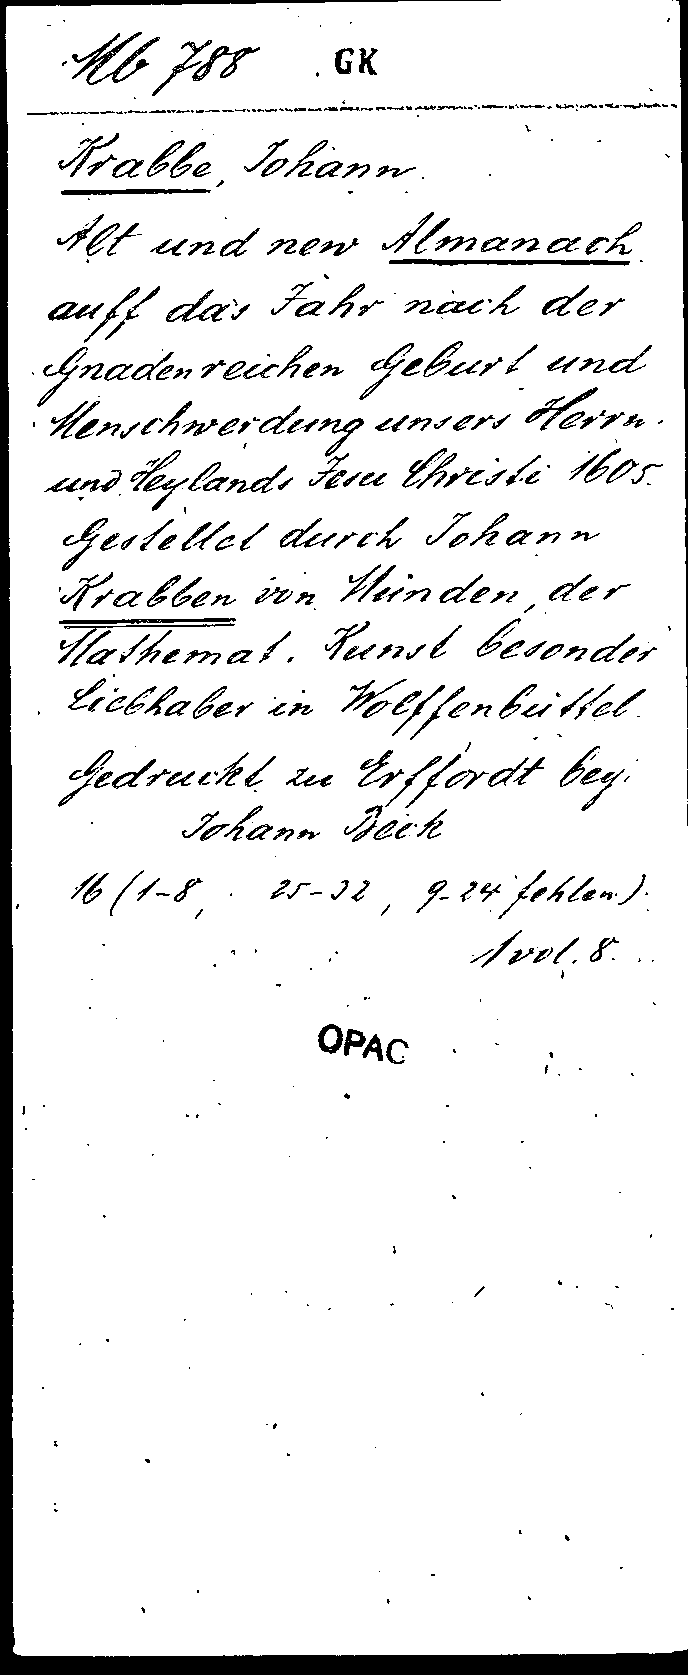 Mb 788 GK
Krabbe, Johann.
Alt und new Almanach
auff das Jahr nach der
Gnadenreichen Geburt und
Menschwerdung unsers Herrn
und Heylands Jesu Christi 1605.
Gestellet durch Johann
Krabben von Münden, der
Mathemat. Kunst besonder
Liebhaber in Wolffenbüttel.
Gedruckt zu Erffordt bey
Johann Beck
16 (1-8, 25-32, 9-24 fehlen).
1 vol. 8.
OPAC